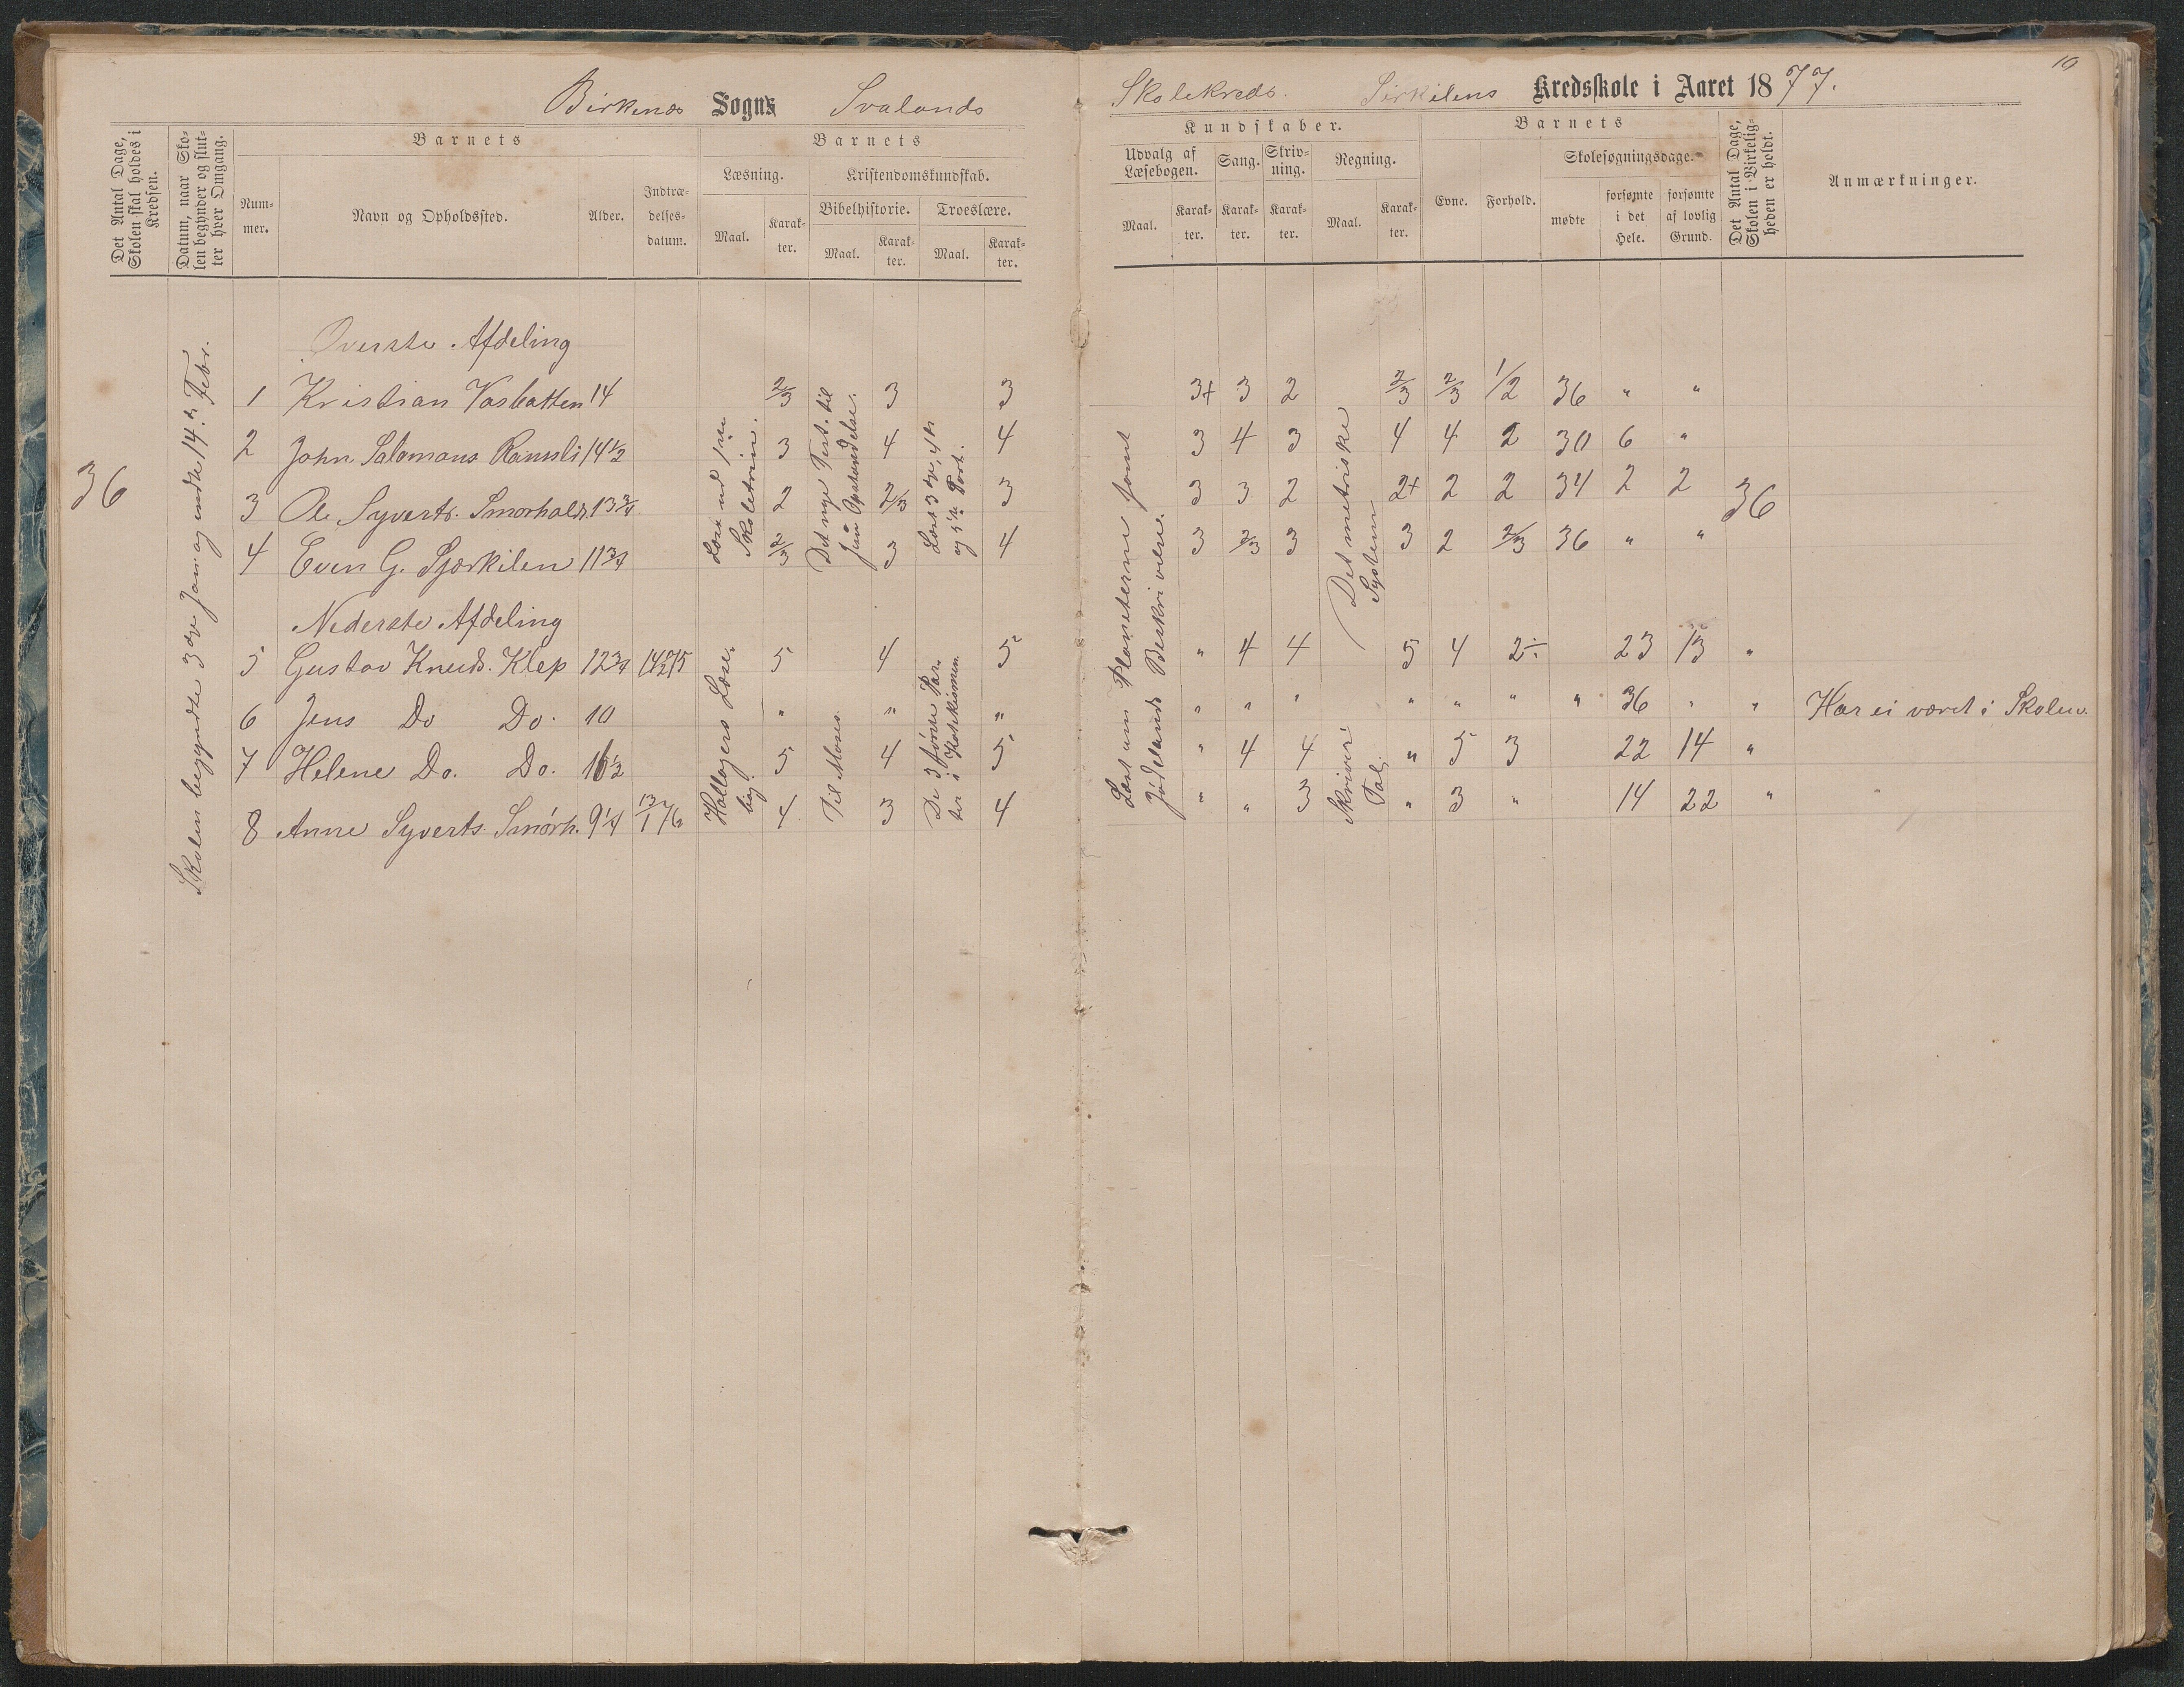 Birkenes Sogns Svalands Skolekreds. Sirkilens Kredsskole i Aaret 1877.
10
Det Antal Dage, Skolen skal holdes i Kredsen.
Datum, naar Skolen begynder og slutter hver Omgang.
Barnets
Nummer.
Navn og Opholdssted.
Alder.
Indtrædelsesdatum.
Barnets
Læsning.
Maal.
Karakter.
Kristendomskundskab.
Bibelhistorie.
Maal.
Karakter.
Troeslære.
Maal.
Karakter.
Kundskaber.
Udvalg af Læsebogen.
Maal.
Karakter.
Sang.
Karakter.
Skrivning.
Karakter.
Regning.
Maal.
Karakter.
Barnets
Evne.
Forhold.
Skolesøgningsdage.
mødte
forsømte i det Hele.
forsømte af lovlig Grund.
Det Antal Dage, Skolen i Virkeligheden er holdt.
Anmærkninger.
36
Skolen begyndte 3die Jan. og endte 14de Febr.
Øverste Afdeling
1 Kristian Vasbotten 14 2/3 3 3 3+ 3 2 2/3 2/3 1/2 36 " "
2 John Salamons 14 1/2 3 4 4 3 4 3 4 4 2 30 6 "
3 Ole Syverts. Smørholdt 13 3/4 2 2/3 3 3 3 2 2+ 2 2 34 2 2 36
4 Even G. Sjørkilen 11 3/4 2/3 3 4 3 2/3 3 3 2 2/3 36 " "
Læst ud 1ste Skoletrin.
Det nye Test. til Jesu Opstandelse.
Læst 3die, 4de og 5te Part.
Læst om Planeterne samt Jødelands Beskrivelse.
Det metriske System
Nederste Afdeling
5 Gustav Knuds. Klep 12 3/4 14/12 75 5 4 5 " 4 4 5 4 2÷ 23 13 "
6 Jens Do Do. 10 " " " " " " " " " " 36 " " Har ei været i Skolen.
7 Helene Do. Do. 16 1/2 5 4 5 " 4 4 " 5 3 22 14 "
8 Anne Syverts. Smørh. 9 1/4 13/1 76 4 3 4 " " 3 " 3 " 14 22 "
Læsebog
Til Moses
De 3 første Parter i Katekismen.
Skriver Tal.